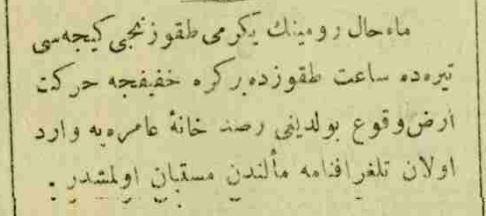 ماه حال رومينك يكرمى طقوزنجى كيجه‌سى
تيره‌ده ساعت طقوزده بركره خفيفجه حركت
ارض وقوع بولديغى رصد خانهٔ عامره‌يه وارد
اولان تلغرافنامه مألندن مستبان اولمشدر .